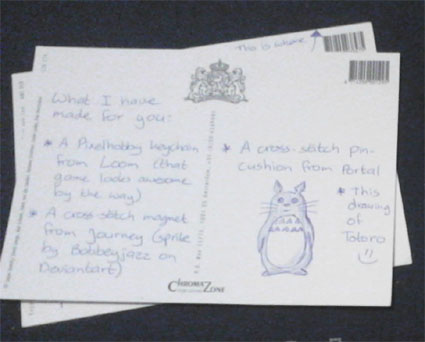 This is where
What I have
made for you:
* A Pixelhobby keychain
from Loom (that
game looks awesome
by the way)
* A cross stitch magnet
from Journey (sprite
by Bobbeyjazz on
Deviantart)
* A cross-stitch pin-
cushion from Portal
* This
drawing
of
Totoro
!!
CHROMAZONE